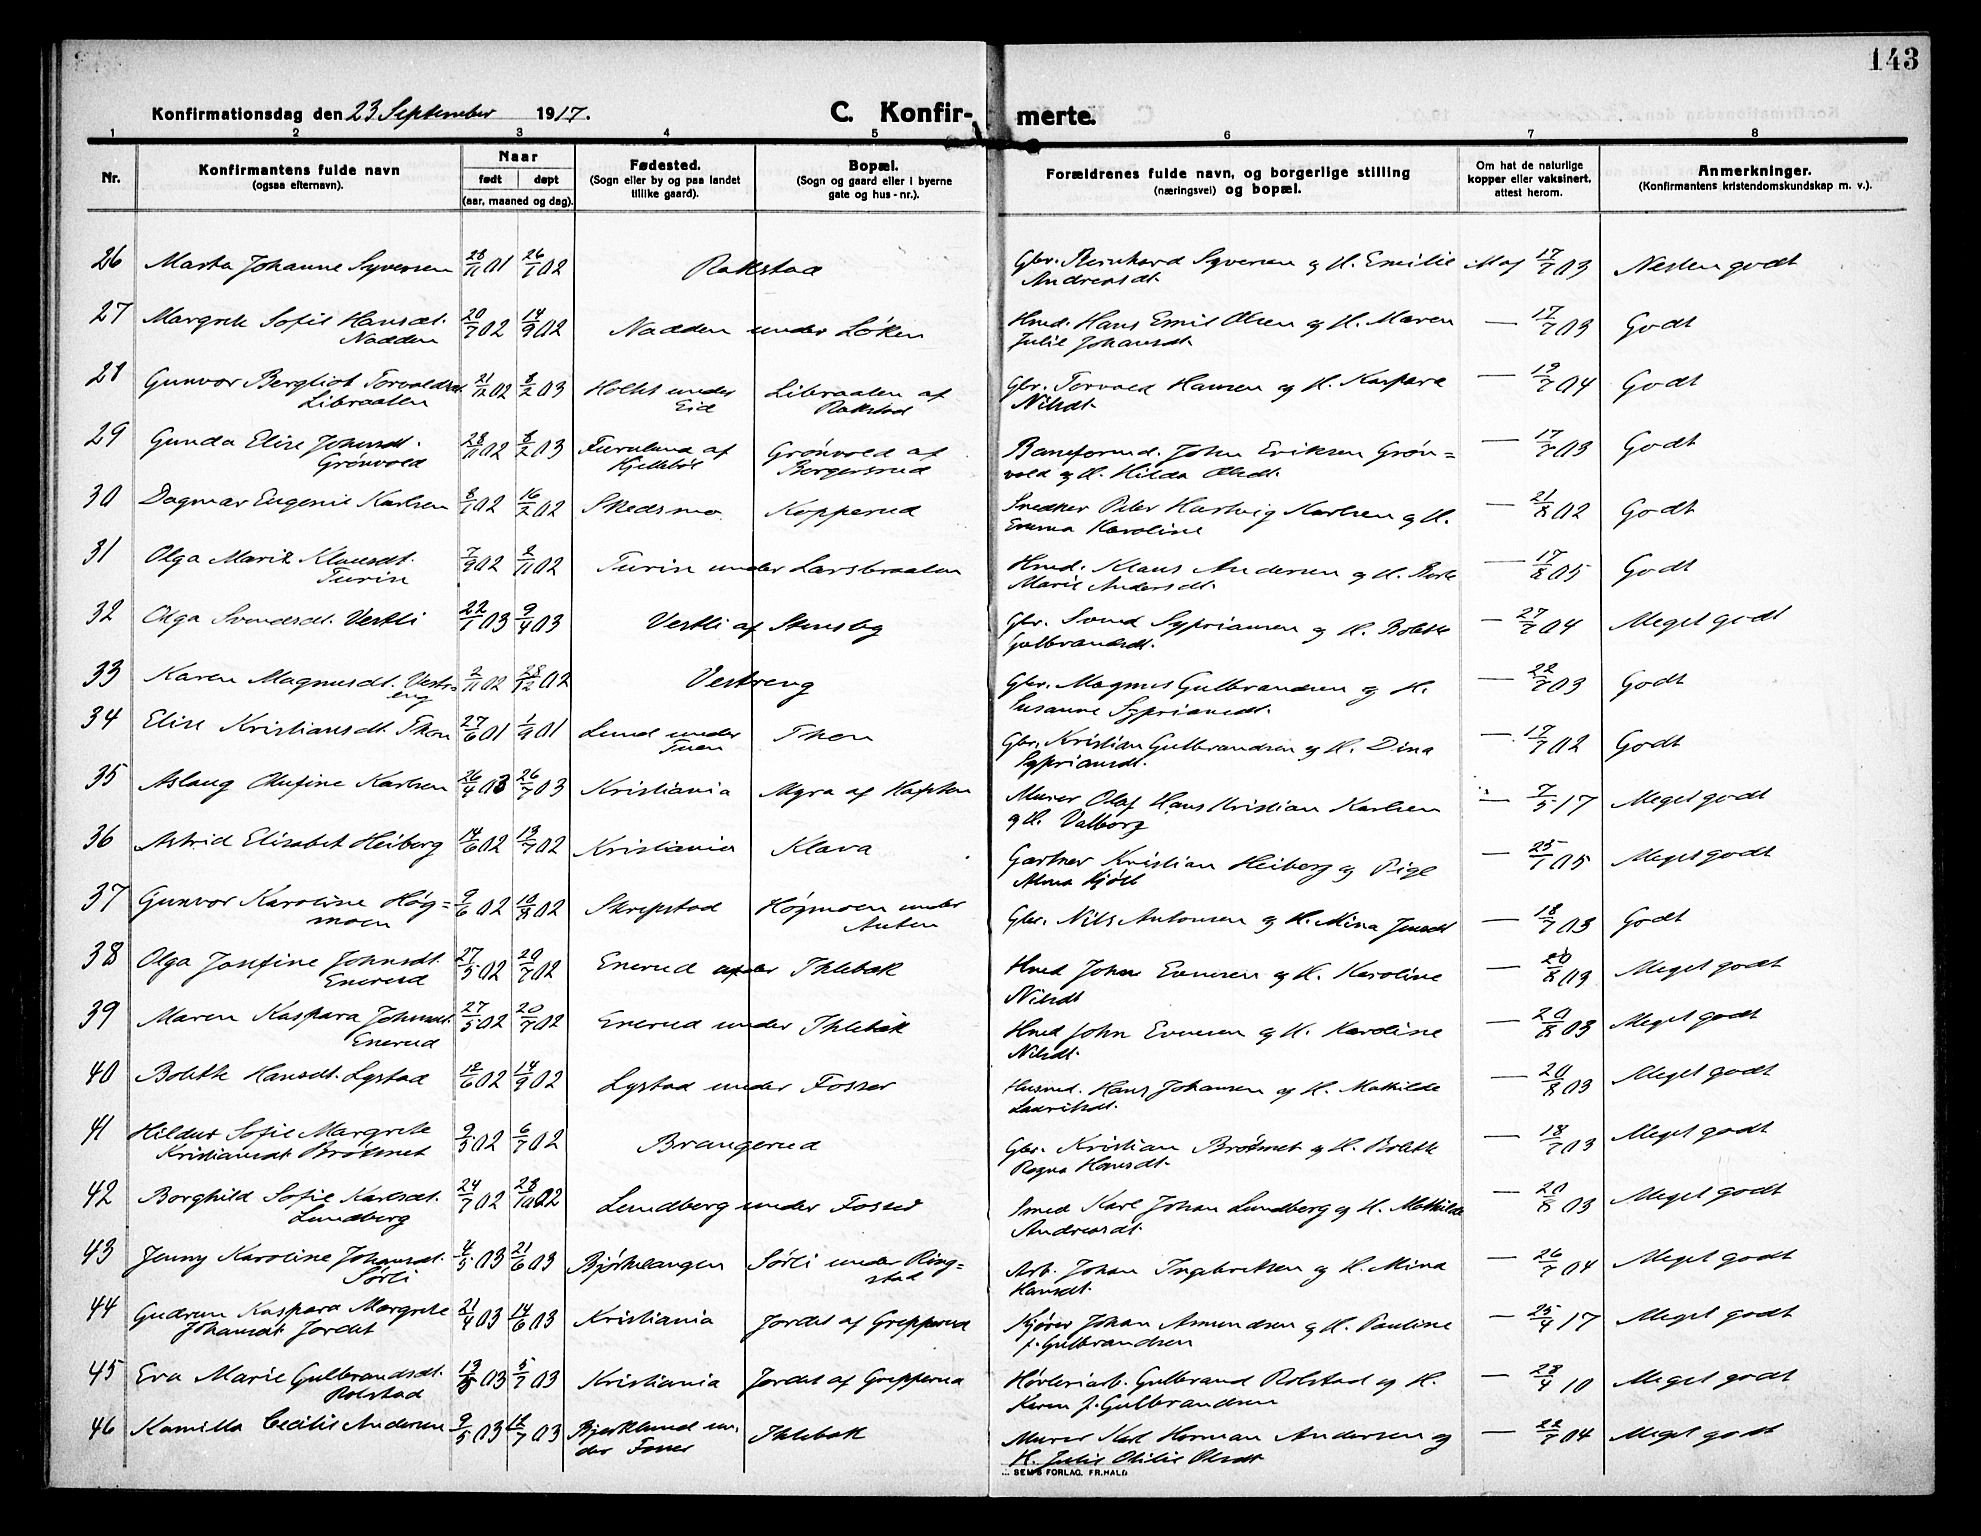 143
Konfirmationsdag den 23 September 1917.
C. Konfir- merte.
1 2 3 4 5 6 7 8
Nr.
Konfirmantens fulde navn
(ogsaa efternavn).
Naar
født døpt
(aar, maaned og dag).
Fødested.
(Sogn eller by og paa landet
tillike gaard).
Bopæl.
(Sogn og gaard eller i byerne
gate og hus-nr.).
Forældrenes fulde navn, og borgerlige stilling
(næringsvei) og bopæl.
Om hat de naturlige
kopper eller vaksinert,
attest herom.
Anmerkninger.
(Konfirmantens kristendomskundskap m. v.).
26 Marta Johanne Syversen 28/11 01 26/1 02 Rakstad Gbr. Bernhard Syversen og H. Emilie 17/7 03 Nesten godt
Andreasdt.
27 Margrete Sofie Hansdt. 20/7 02 14/9 02 Nadden under Løken Hmd. Hans Emil Olsen og H. Maren — 17/7 03 Godt
Nadden Julie Johansdt.
28 Gunvor Bergliot Torvaldsdt. 21/12 02 8/2 03 Holtet under Libraaten af Gbr. Torvald Hansen og H. Kaspara — 19/7 04 Godt
Libraaten Eid Rakstad Nilsdt.
29 Gunda Elise Johnsdt. 28/11 02 8/2 03 Furulund af Grønvold af Baneformd. John Eriksen Grøn= — 17/7 03 Godt
Grønvold Kjellebøl Borgersrud vold og H. Hilda Olsdt.
30 Dagmar Eugenie Karlsen 8/1 02 16/2 02 Skedsmo Kopperud Snedker Peter Hartvig Karlsen og H. — 21/8 02 Godt
Emma Karoline
31 Olga Marie Klausdt. 7/9 02 2/11 02 Turin under Larsbraaten Hmd. Klaus Andersen og H. — 17/8 05 Godt
Turin Marie Andersdt.
32 Olga Svendsdt. Vestli 22/1 03 9/4 03 Vestli af Stensby Gbr. Svend Sypriansen og H. Bolette — 27/7 04 Meget godt
Gulbrandsdt.
33 Karen Magnusdt. Vestr= 2/11 02 28/12 02 Vestreng Gbr. Magnus Gulbrandsen og H. — 22/7 03 Godt
eng Susanne Sypriansdt.
34 Elise Kristiansdt. Thon 27/6 01 1/9 01 Lund under Thon Gbr. Kristian Gulbrandsen og H. Dina — 17/7 02 Godt
Tuen Sypriansdt.
35 Aslaug Olufine Karlsen 26/4 03 26/7 03 Kristiania Myra af Murer Olaf Hans Kristian Karlsen — 7/5 17 Meget godt
og H. Valborg
36 Astrid Elisabet Heiberg 14/6 02 13/7 02 Kristiania Klava Gartner Kristian Heiberg og Pige — 25/1 05 Meget godt
Alma
37 Gunvor Karoline Høg= 9/6 02 10/8 02 Skrepstad Høgmoen under Gbr. Nils Antonsen og H. Mina — 18/7 03 Godt
moen Auten
38 Olga Josefine Johnsdt. 27/5 02 20/7 02 Enerud under Ihlebæk Hmd John Evensen og H. Karoline — 20/8 03 Meget godt
Enerud Nilsdt
39 Maren Kaspara Johnsdt. 27/5 02 20/7 02 Enerud under Ihlebæk Hmd John Evensen og H. Karoline — 20/8 03 Meget godt
Enerud Nilsdt.
40 Bolette Hansdt. Lystad 12/6 02 14/9 02 Lystad under Fosser Husmd. Hans Johansen og H. Mathilde — 20/8 03 Meget godt
Lauritsdt.
41 Hildur Sofie Margrete 9/5 02 6/7 02 Brangerud Gbr. Kristian Brøsmet og H. Bolette — 18/7 03 Meget godt
Kristiansdt Brøsmet Ragna Hansdt.
42 Borghild Sofie Karlsdt. 24/7 02 28/10 02 Lundberg under Fosser Smed Karl Johan Lundberg og H. Mathilde — 20/8 03 Meget godt
Lundberg Andreasdt.
43 Jenny Karoline Johansdt. 4/5 03 21/6 03 Bjørkelangen Sørli under Ring= Arb. Johan Ingebretsen og H. Mina — 26/7 04 Meget godt
Sørli stad Hansdt.
44 Gudrun Kaspara Margrete 21/4 03 14/6 03 Kristiania Jordet af Grepperud Kjører Johan Amundsen og H. Pauline — 25/4 17 Meget godt
Johansdt Jordet f. Gulbrandsen
45 Eva Marie Gulbrandsdt. 13/5 03 5/7 03 Kristiania Jordet af Grepperud Høvleriarb. Gulbrand Rolstad og H. — 28/4 10 Meget godt
Rolstad Karen f. Gulbrandsen
46 Kamilla Cecilie Andersen 9/5 03 12/7 03 Bjerklund un- Ihlebæk Murer Karl Herman Andersen og — 22/7 04 Meget godt
der Fosser H. Julie Otilie Olsdt
SEMS FORLAG, FR.HALD